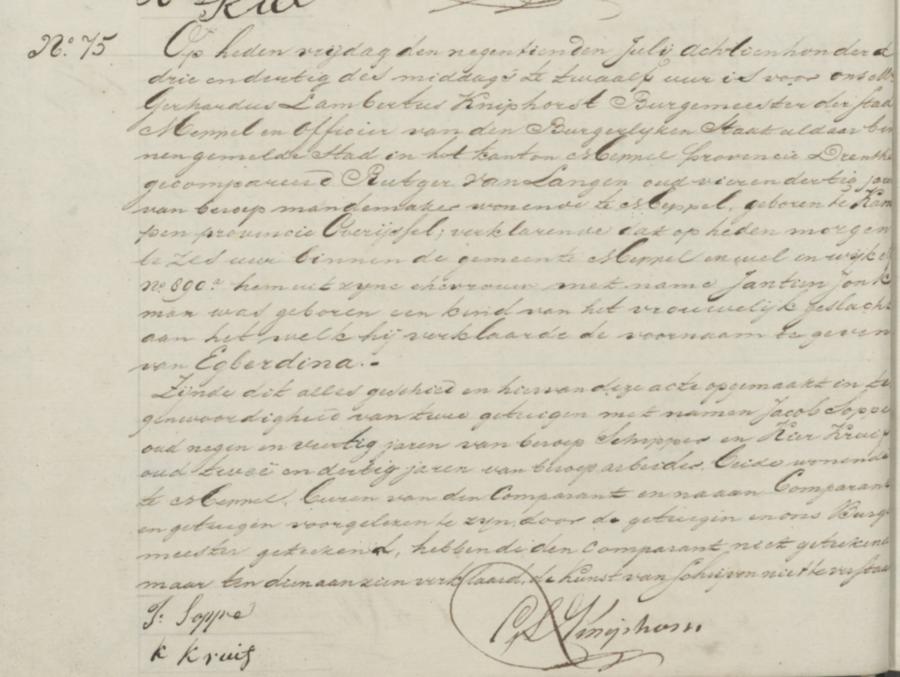 No. 75. Op heden vrijdag den negentienden Juli achttienhonderd
drie en dertig des middags te twaalf uur is voor ons
Gerhardus Lambertus Kniphorst Burgemeester der Stad
Meppel en Officier van den Burgerlyken Staat aldaar bin
nengemelde Stad in het kanton Meppel provincie Drenthe
gecompareerd Rutger van Langen oud vier en dertig jaren
van beroep mandemaker wonende te Meppel, geboren te Kam
pen provincie Overijssel; verklarende dat op heden morgen
te zes uur binnen de gemeente Meppel en wel en wijk
no 890. hem uit zyne ehevrouw met name Jantien Jonk
man was geboren een kind van het vrouwelijk geslacht
aan het welk hij verklaarde de voornaam te geven
van Egberdina.-
Zijnde dit alles geschied en hiervan deze acte opgemaakt in te
genwoordigheid van twee getuigen met namen Jacob Soppe
oud negen en veertig jaren van beroep Schipper en Kier Kruis
oud twee en dertig jaren van beroep arbeider, beide wonende
te Meppel. Curen van den Comparant en naaan Comparant
en getuigen voorgelezen te zyn, door de getuigen en ons Burge
meester getekend, hebbende den Comparant niet getekend
maar ten dien aanzien verklaard, de kunst van Schrijven niet te verstaan
J. Soppe
K Kruis
G L Kniphorst